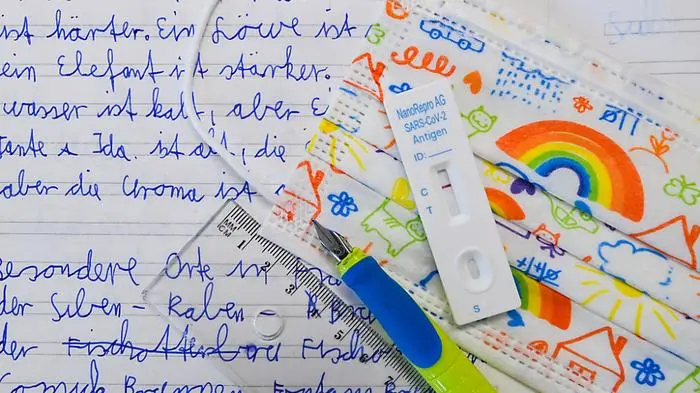 ist härter. Ein Löwe ist
ein Elefant ist stärker.
wasser ist kalt, aber
Tante Ida. ist alt, die
aber die Uroma ist
esondere Orte in
der Silben - Raben -
der
NanoRepro AG
SARS-CoV-2
Antigen
ID:
C
T
S
MM
CM 1 2 3 5